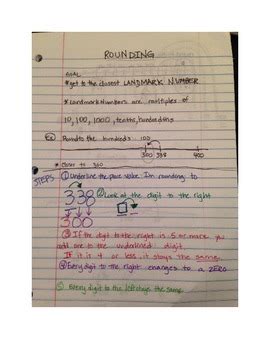 ROUNDING
GOAL
*get to the closest LANDMARK NUMBER
*Landmark Numbers are multiples of
10, 100, 1000, tenths, hundredths
Ex Round to the hundreds 100
300 338 400
* closer to 300
STEPS ① Underline the place value I'm rounding to
338 ② Look at the digit to the right
300
③ If the digit to the right is 5 or more you
add one to the underlined digit.
If it is 4 or less, it stays the same.
④ Every digit to the right changes to a ZERO
⑤ Every digit to the left stays the same